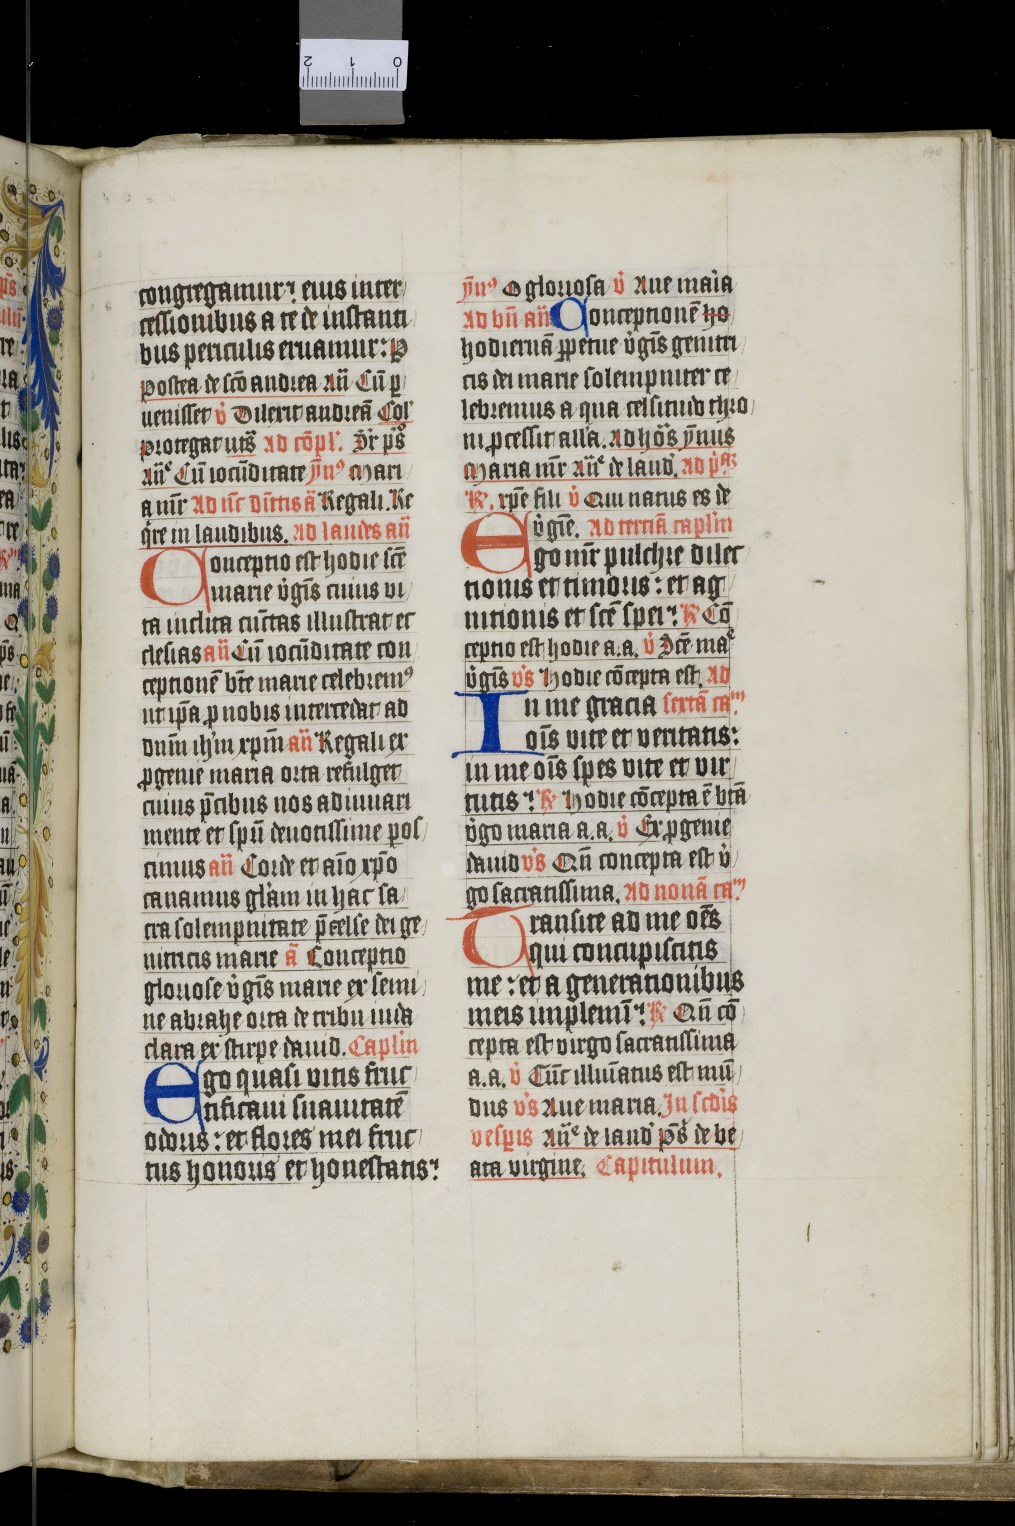 congregamur: eius inter
cessionibus a te de instanti
bus periculis eruamur: P
Postea de scō andrea Añ Cū ꝑ
uenisset v̊ Dilexit andreā Col'
Protegat uts̄ Ad cōpl'. Dr̄ ps̄
Añe Cū iocūditate ym̄9 Mari
a mr̄ Ad īuīt dn̄ītis ā Regali. Re
qr̄e in laudibus. Ad laudes añ
Conceptio est hodie scē
marie v̊gīs cuius vi
ta inclita cūctas illustrat ec
clesias añ Cū iocūditate con
ceptionē bt̄e marie celebrem9
ut ip̄a ꝓ nobis intercedat ad
dnm̄ ih̄m xp̄m añ Regali ex
ꝓgenie maria orta refulget
cuius p̄cibus nos adiuuari
mente et spū deuotissime pos
cimus añ Corde et aīo xp̄o
canamus glām in hac sa
cra solempnitate p̄celse dei ge
nitricis marie ā Conceptio
gloriose v̊gīs marie ex semi
ne abrahe orta de tribu iuda
clara ex stirpe dauid. Caplm̄
Ego quasi vitis fruc
tificaui suauitatē
odoris: et flores mei fruc
tus honoris et honestatis:
ym̄9 O gloriosa v̊ Aue maria
Ad bn̄ añ Conceptionē ho
hodiernā ꝑpetue v̊gīs genitri
cis dei marie solempniter ce
lebremus a qua celsitud thro
ni ꝓcessit all'a. Ad hōs ymnus
Maria mr̄ Añe de laud'. Ad p'ᵃᵐ
R̸. xp̄e fili v̊ Qui natus es de
v̊gīe. Ad terciā caplm̄
Ego mr̄ pulchre dilec
tionis et timoris: et ag
nitionis et scē spei: R̸ Cō
ceptio est hodie a.a. v̊ Dc̄e mae
v̊gīs v̊s Hodie cōcepta est. Ad
In me gracia sextā caᵐ
oīs vite et veritatis:
in me oīs spes vite et vir
tutis: R̸ Hodie cōcepta ē btā
v̊go maria a.a. v̊ Ex ꝓgenie
dauid v̊s Qn̄ concepta est v̊
go sacratissima. Ad nonā caᵐ
Transite ad me oēs
qui concupiscitis
me: et a generationibus
meis implemī: R̸ Qn̄ cō
cepta est virgo sacratissima
a.a. v̊ Tūc illuīatus est mū
dus v̊s Aue maria. In scdīs
vesꝑis Añe de laud' ps̄ de be
ata virgine. Capitulum.